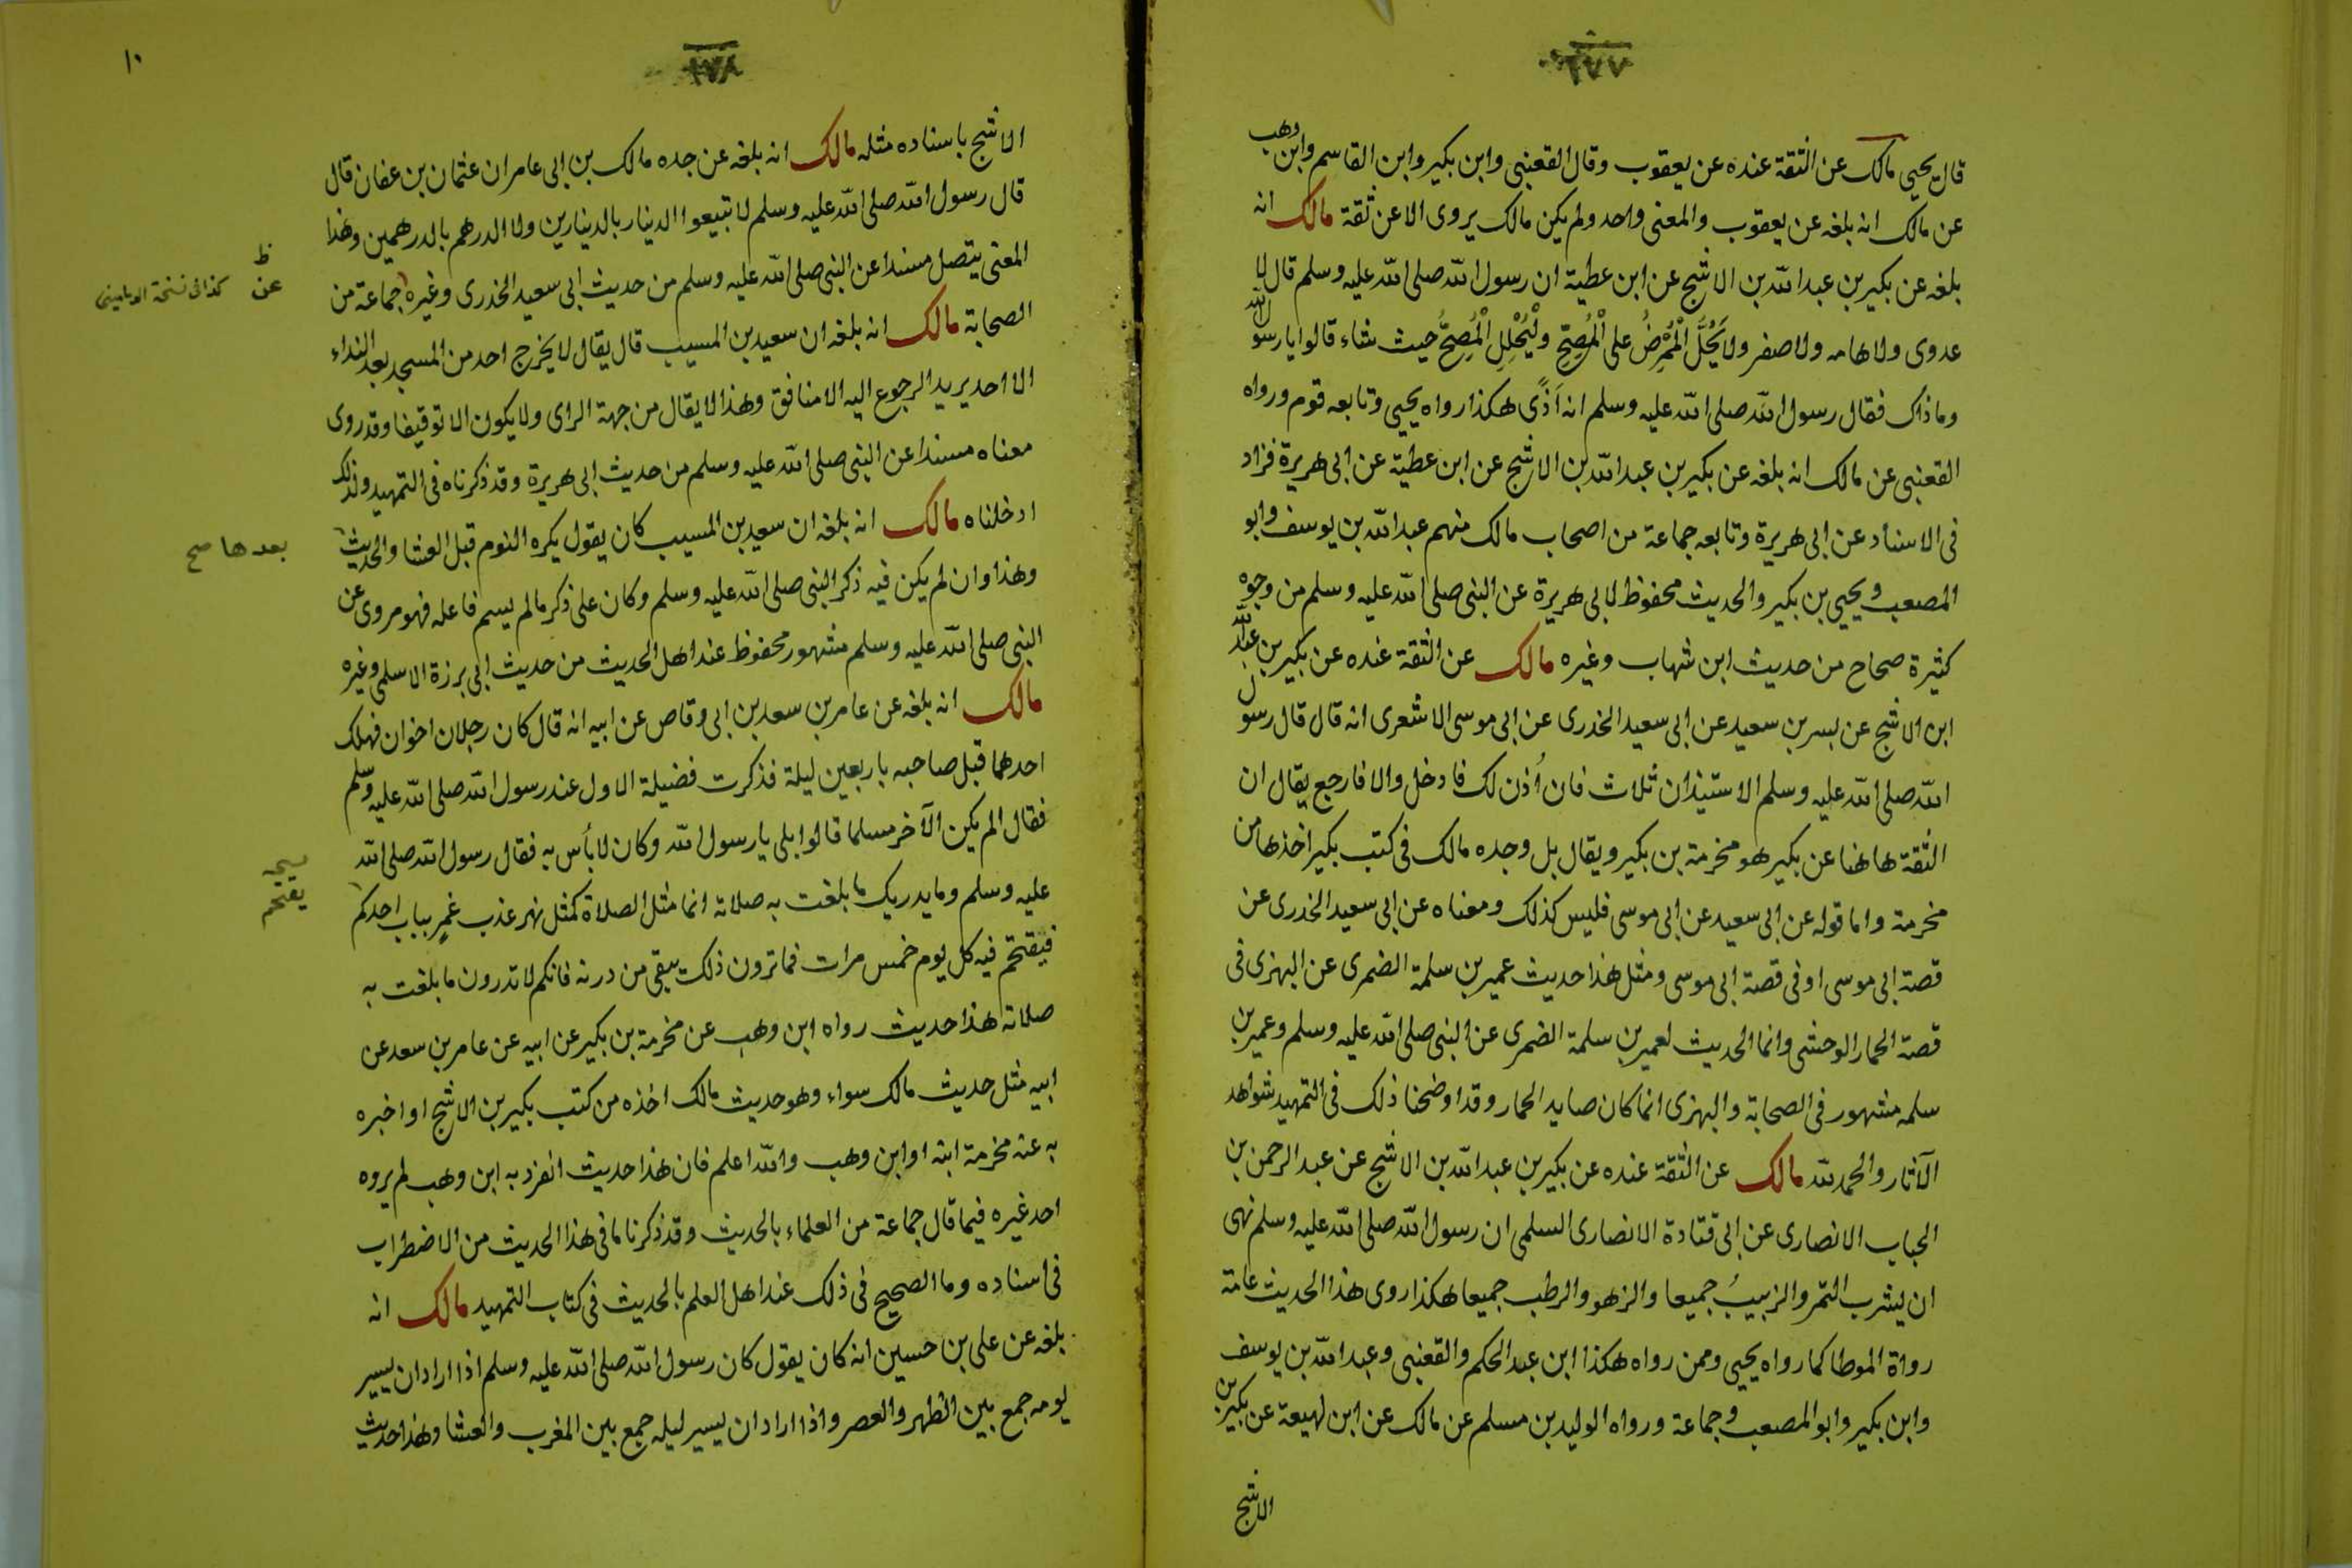 ٢٧٧
قال يحيى مالك عن الثقة عنده عن يعقوب وقال القعنبى وابن بكير وابن القاسم وابن وهب
عن مالك انه بلغه عن يعقوب والمعنى واحد ولم يكن مالك يروى الا عن ثقة مالك انه
بلغه عن بكير بن عبد الله بن الاشج عن ابن عطية ان رسول الله صلى الله عليه وسلم قال لا
عدوى ولا هامه ولا صفر ولا يَحُلُّ الْمُمْرِضُ على الْمُصِحِّ ولْيَحْلِلِ الْمُصِحُّ حيث شاء قالوا يا رسول الله
وما ذاك فقال رسول الله صلى الله عليه وسلم انه اَذًى هكذا رواه يحيى وتابعه قوم ورواه
القعنبى عن مالك انه بلغه عن بكير بن عبد الله بن الاشج عن ابن عطية عن ابى هريرة فزاد
فى الاسناد عن ابى هريرة وتابعه جماعة من اصحاب مالك منهم عبد الله بن يوسف وابو
المصعب ويحيى بن بكير والحديث محفوظ لابى هريرة عن النبى صلى الله عليه وسلم من وجوه
كثيرة صحاح من حديث ابن شهاب وغيره مالك عن الثقة عنده عن بكير بن عبد الله
ابن الاشج عن بسر بن سعيد عن ابى سعيد الخدرى عن ابى موسى الاشعرى انه قال قال رسول
الله صلى الله عليه وسلم الاستيذان ثلاث فان اُذن لك فادخل والا فارجع يقال ان
الثقة هاهنا عن بكير هو مخرمة بن بكير ويقال بل وجده مالك فى كتب بكير اخذها من
مخرمة واما قوله عن ابى سعيد عن ابى موسى فليس كذلك ومعناه عن ابى سعيد الخدرى عن
قصة ابى موسى او فى قصة ابى موسى ومثل هذا حديث عمير بن سلمة الضمرى عن البهزى فى
قصة الحمار الوحشى وانما الحديث لعمير بن سلمة الضمرى عن النبى صلى الله عليه وسلم وعمير بن
سلمه مشهور فى الصحابة والبهزى انما كان صايد الحمار وقد اوضحنا ذلك فى التمهيد بشواهد
الآثار والحمد لله مالك عن الثقة عنده عن بكير بن عبد الله بن الاشج عن عبد الرحمن بن
الحباب الانصارى عن ابى قتادة الانصارى السلمى ان رسول الله صلى الله عليه وسلم نهى
ان يشرب التمر والزبيبُ جميعا والزهو والرطب جميعا هكذا روى هذا الحديث عامة
رواة الموطا كما رواه يحيى وممن رواه هكذا ابن عبد الحكم والقعنبى وعبد الله بن يوسف
وابن بكير وابو المصعب وجماعة ورواه الوليد بن مسلم عن مالك عن ابن لهيعة عن بكير بن
الاشج
٢٧٨
١٠
الاشج باسناده مثله مالك انه بلغه عن جده مالك بن ابى عامر ان عثمان بن عفان قال
قال رسول الله صلى الله عليه وسلم لا تبيعوا الدينار بالدينارين ولا الدرهم بالدرهمين وهذا
المعنى يتصل مسندا عن النبى صلى الله عليه وسلم من حديث ابى سعيد الخدرى وغيره جماعة من
ظ
عن
كذا فى نسخة
الصحابة مالك انه بلغه ان سعيد بن المسيب قال يقال لا يخرج احد من المسجد بعد النداء
الا احد يريد الرجوع اليه الا منافق وهذا لا يقال من جهة الراى ولا يكون الا توقيفا وقد روى
معناه مسندا عن النبى صلى الله عليه وسلم من حديث ابى هريرة وقد ذكرناه فى التمهيد ولذلك
ادخلناه مالك انه بلغه ان سعيد بن المسيب كان يقول يكره النوم قبل العشا والحديث
بعدها صح
وهذا وان لم يكن فيه ذكر النبى صلى الله عليه وسلم وكان على ذكر ما لم يسم فاعله فهو مروى عن
النبى صلى الله عليه وسلم مشهور محفوظ عند اهل الحديث من حديث ابى برزة الاسلمى وغيره
مالك انه بلغه عن عامر بن سعد بن ابى وقاص عن ابيه انه قال كان رجلان اخوان فهلك
احدهما قبل صاحبه باربعين ليلة فذكرت فضيلة الاول عند رسول الله صلى الله عليه وسلم
فقال الم يكن الآخر مسلما قالوا بلى يا رسول الله وكان لا بأس به فقال رسول الله صلى الله
عليه وسلم وما يدريك ما بلغت به صلاته انما مثل الصلاة كمثل نهر عذب غمرٍ بباب احدكم
يقتحم
فيقتحم فيه كل يوم خمس مرات فما ترون ذلك يبقى من درنه فانكم لا تدرون ما بلغت به
صلاته هذا حديث رواه ابن وهب عن مخرمة بن بكير عن ابيه عن عامر بن سعد عن
ابيه مثل حديث مالك سواء وهو حديث مالك اخذه من كتب بكير بن الاشج او اخبره
به عنه مخرمة ابنه او ابن وهب والله اعلم فان هذا حديث انفرد به ابن وهب لم يروه
احد غيره فيما قال جماعة من العلماء بالحديث وقد ذكرنا ما فى هذا الحديث من الاضطراب
فى اسناده وما الصحيح فى ذلك عند اهل العلم بالحديث فى كتاب التمهيد مالك انه
بلغه عن على بن حسين انه كان يقول كان رسول الله صلى الله عليه وسلم اذا اراد ان يسير
يومه جمع بين الظهر والعصر واذا اراد ان يسير ليله جمع بين المغرب والعشا وهذا حديث